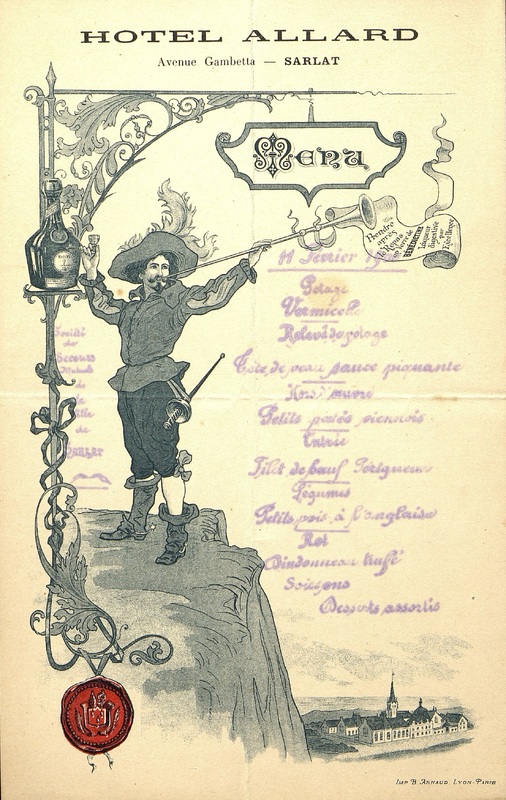 HOTEL ALLARD
Avenue Gambetta — SARLAT
Menu
Prendre
après
le Repas
un verre de
BÉNÉDICTINE
Liqueur
digestive
par
Excellence
11 Février
Potage
Vermicelle
Relevé de potage
Tête de veau sauce piquante
Hors d'œuvre
Petits patés viennois
Entrée
Filet de bœuf Périgueux
Légumes
Petits pois à l'anglaise
Rot
Dindonneau truffé
Desserts assortis
Société
de
Secours
Mutuels
de
la
Ville
de
SARLAT
IMP B. ARNAUD, LYON-PARIS